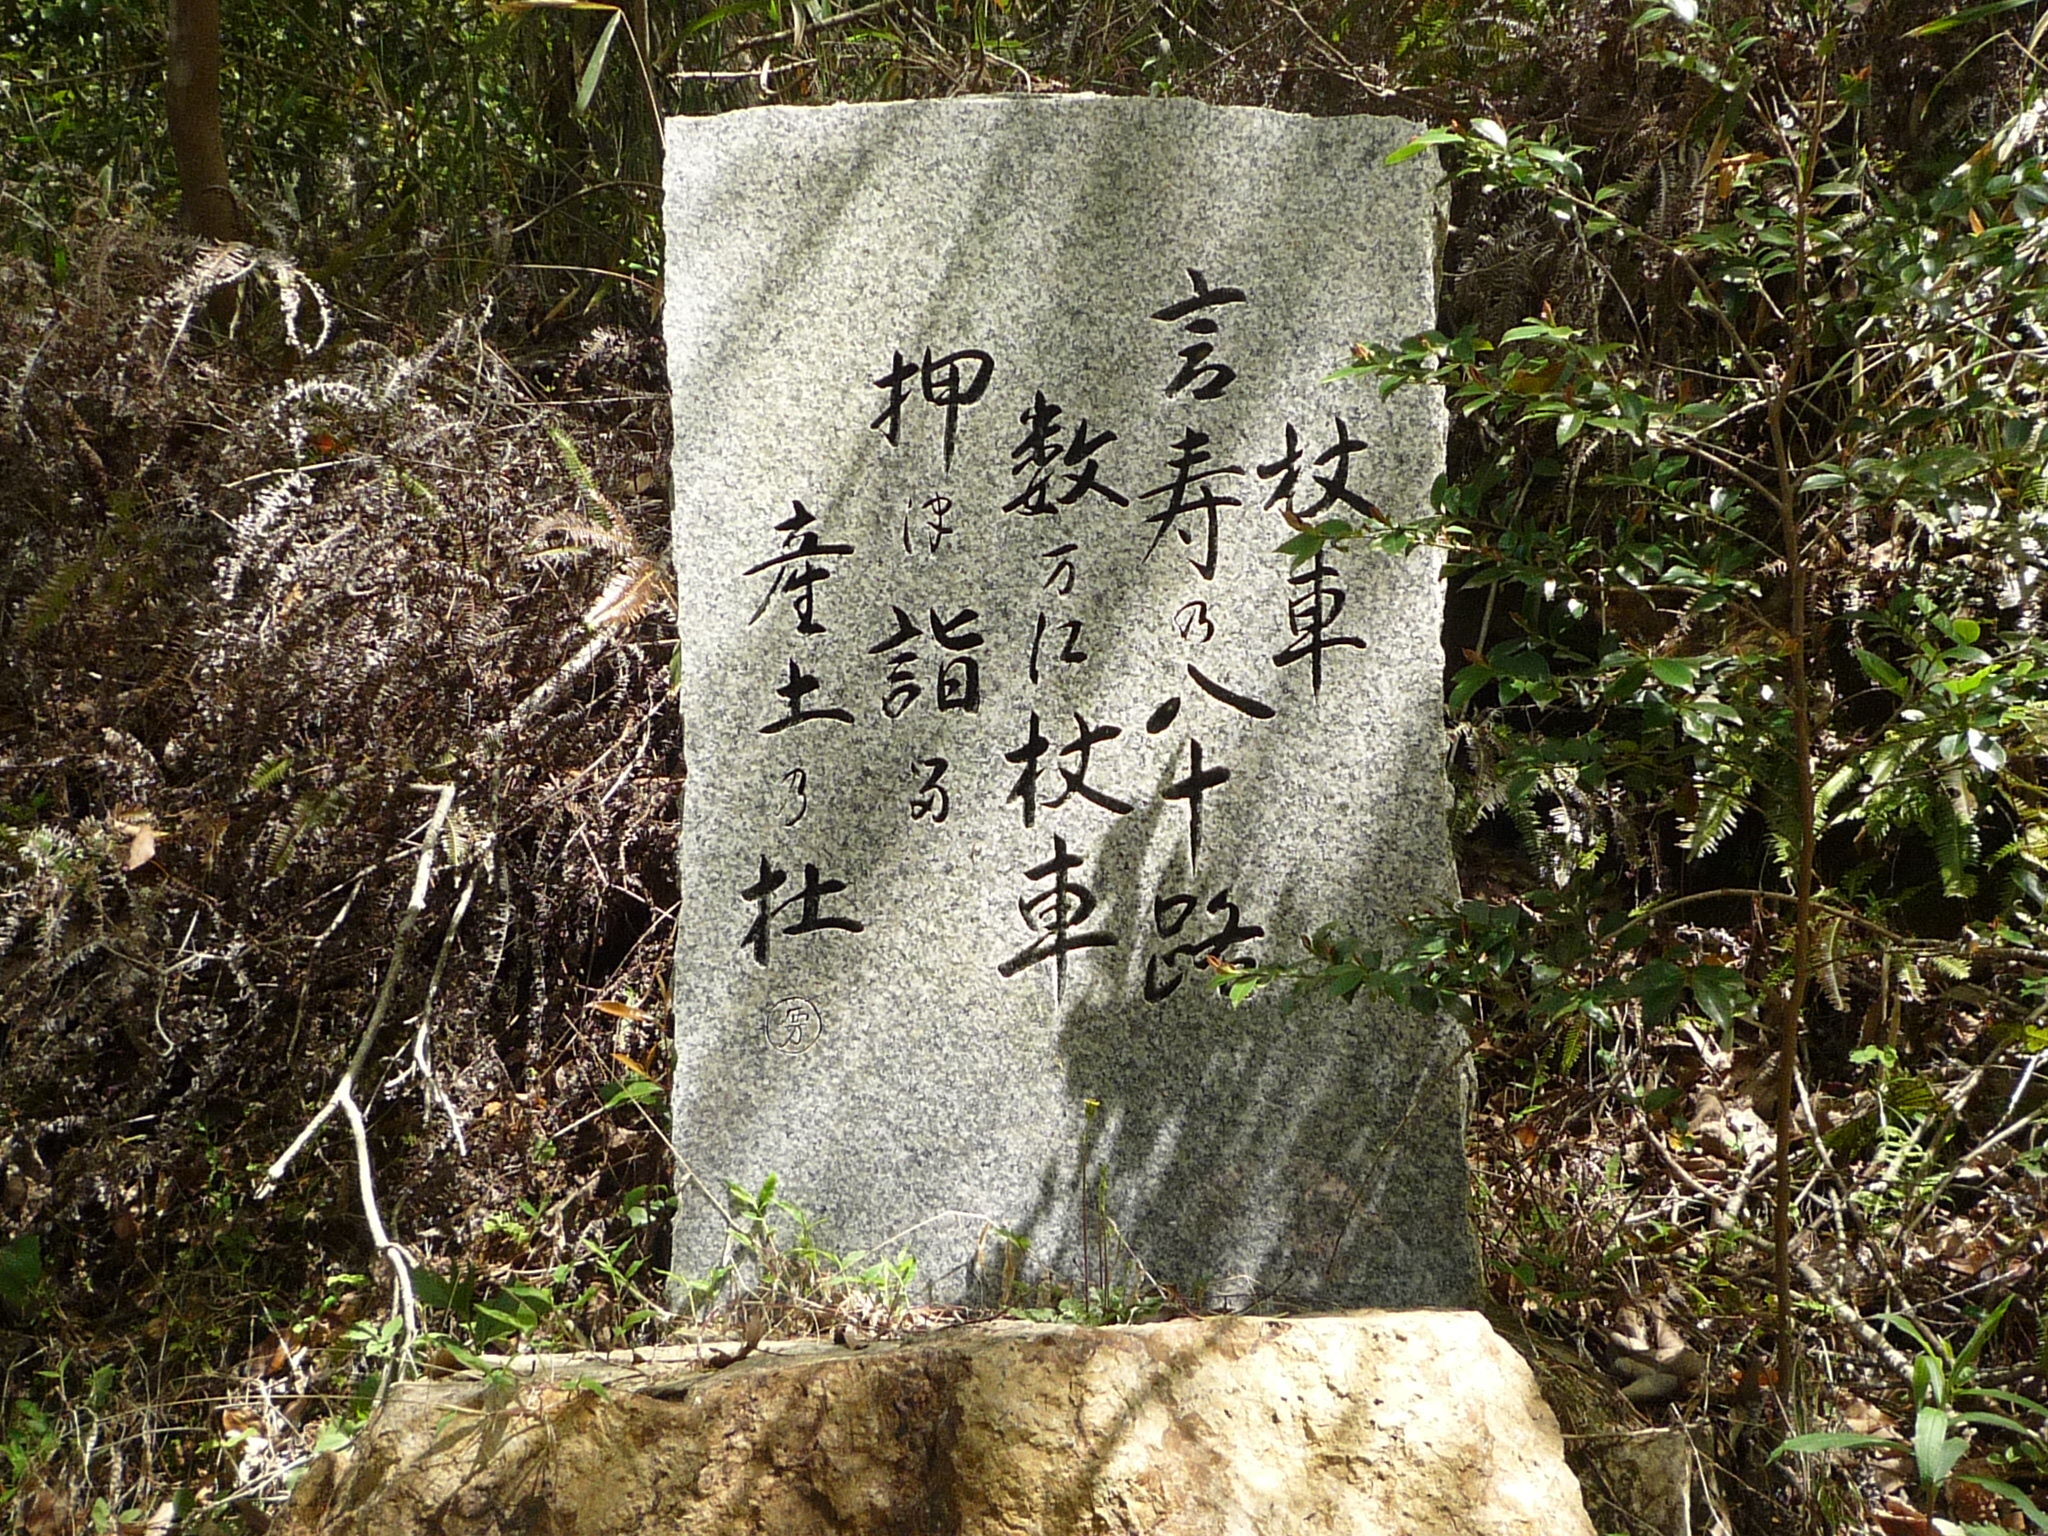 杖車
言寿乃八十路
数万江杖車
押津詣る
産土乃杜